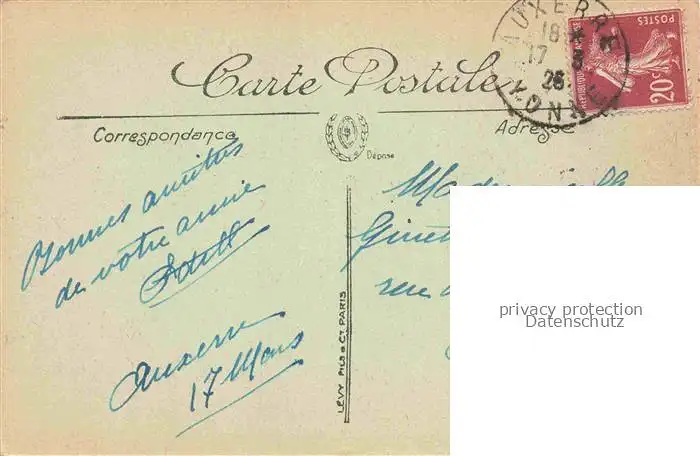 Carte Postale
Correspondance
Adresse
Déposé
AUXERRE
18
17 3
26
YONNE
POSTES
REPUBLIQUE FRANÇAISE
20c
Bonnes amitiés
de votre amie
Auxerre
17 Mars
Mademoiselle
rue
LÉVY FILS & Cie PARIS
privacy protection
Datenschutz